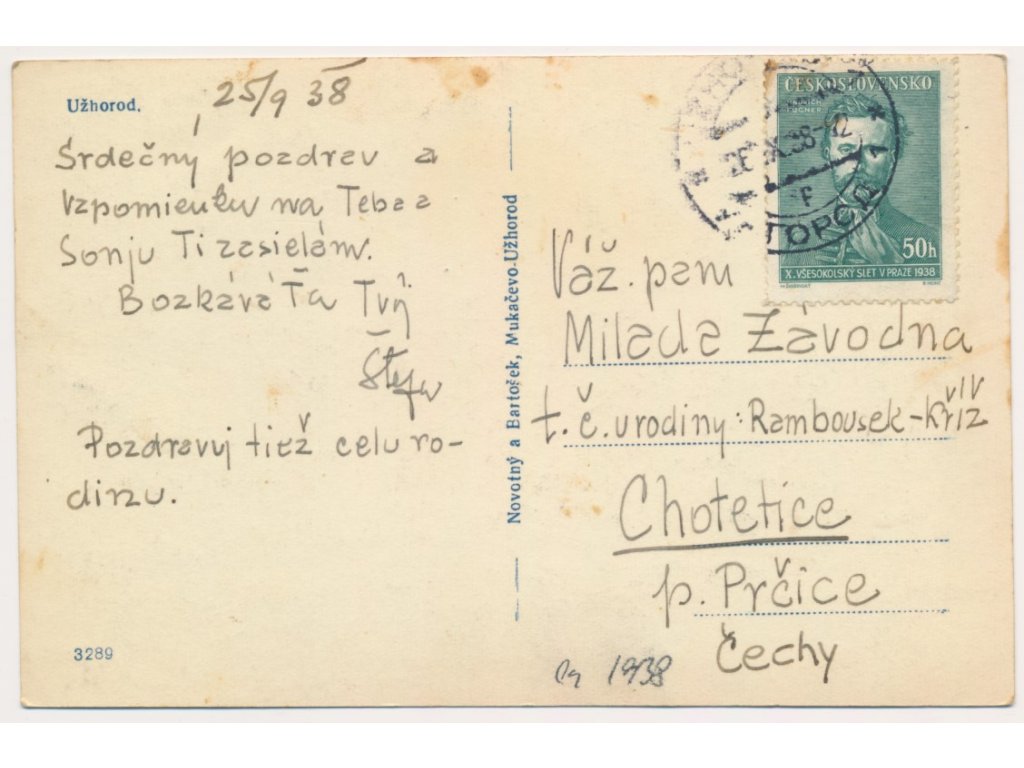 Užhorod.
25/9 38
Srdečný pozdrav a
vzpomienku na Teba a
Sonju Ti zasielám.
Bozkává Ťa Tvůj
Štefan
Pozdravuj tiež celu ro-
dinu.
3289
Novotný a Bartošek, Mukačevo-Užhorod
ČESKOSLOVENSKO
JINDŘICH
FÜGNER
50h
X. VŠESOKOLSKÝ SLET V PRAZE 1938
Váž. pani
Milada Závodna
t. č. u rodiny: Rambousek-Kříž
Chotetice
p. Prčice
Čechy
1938